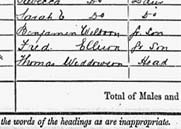 Rebecca Do Daur
Sarah E Do Do
Benjamin Wilson G. Son
Fred Ellison Gr Son
Thomas Widdowson Head
Total of Males and
the words of the headings as are inappropriate.